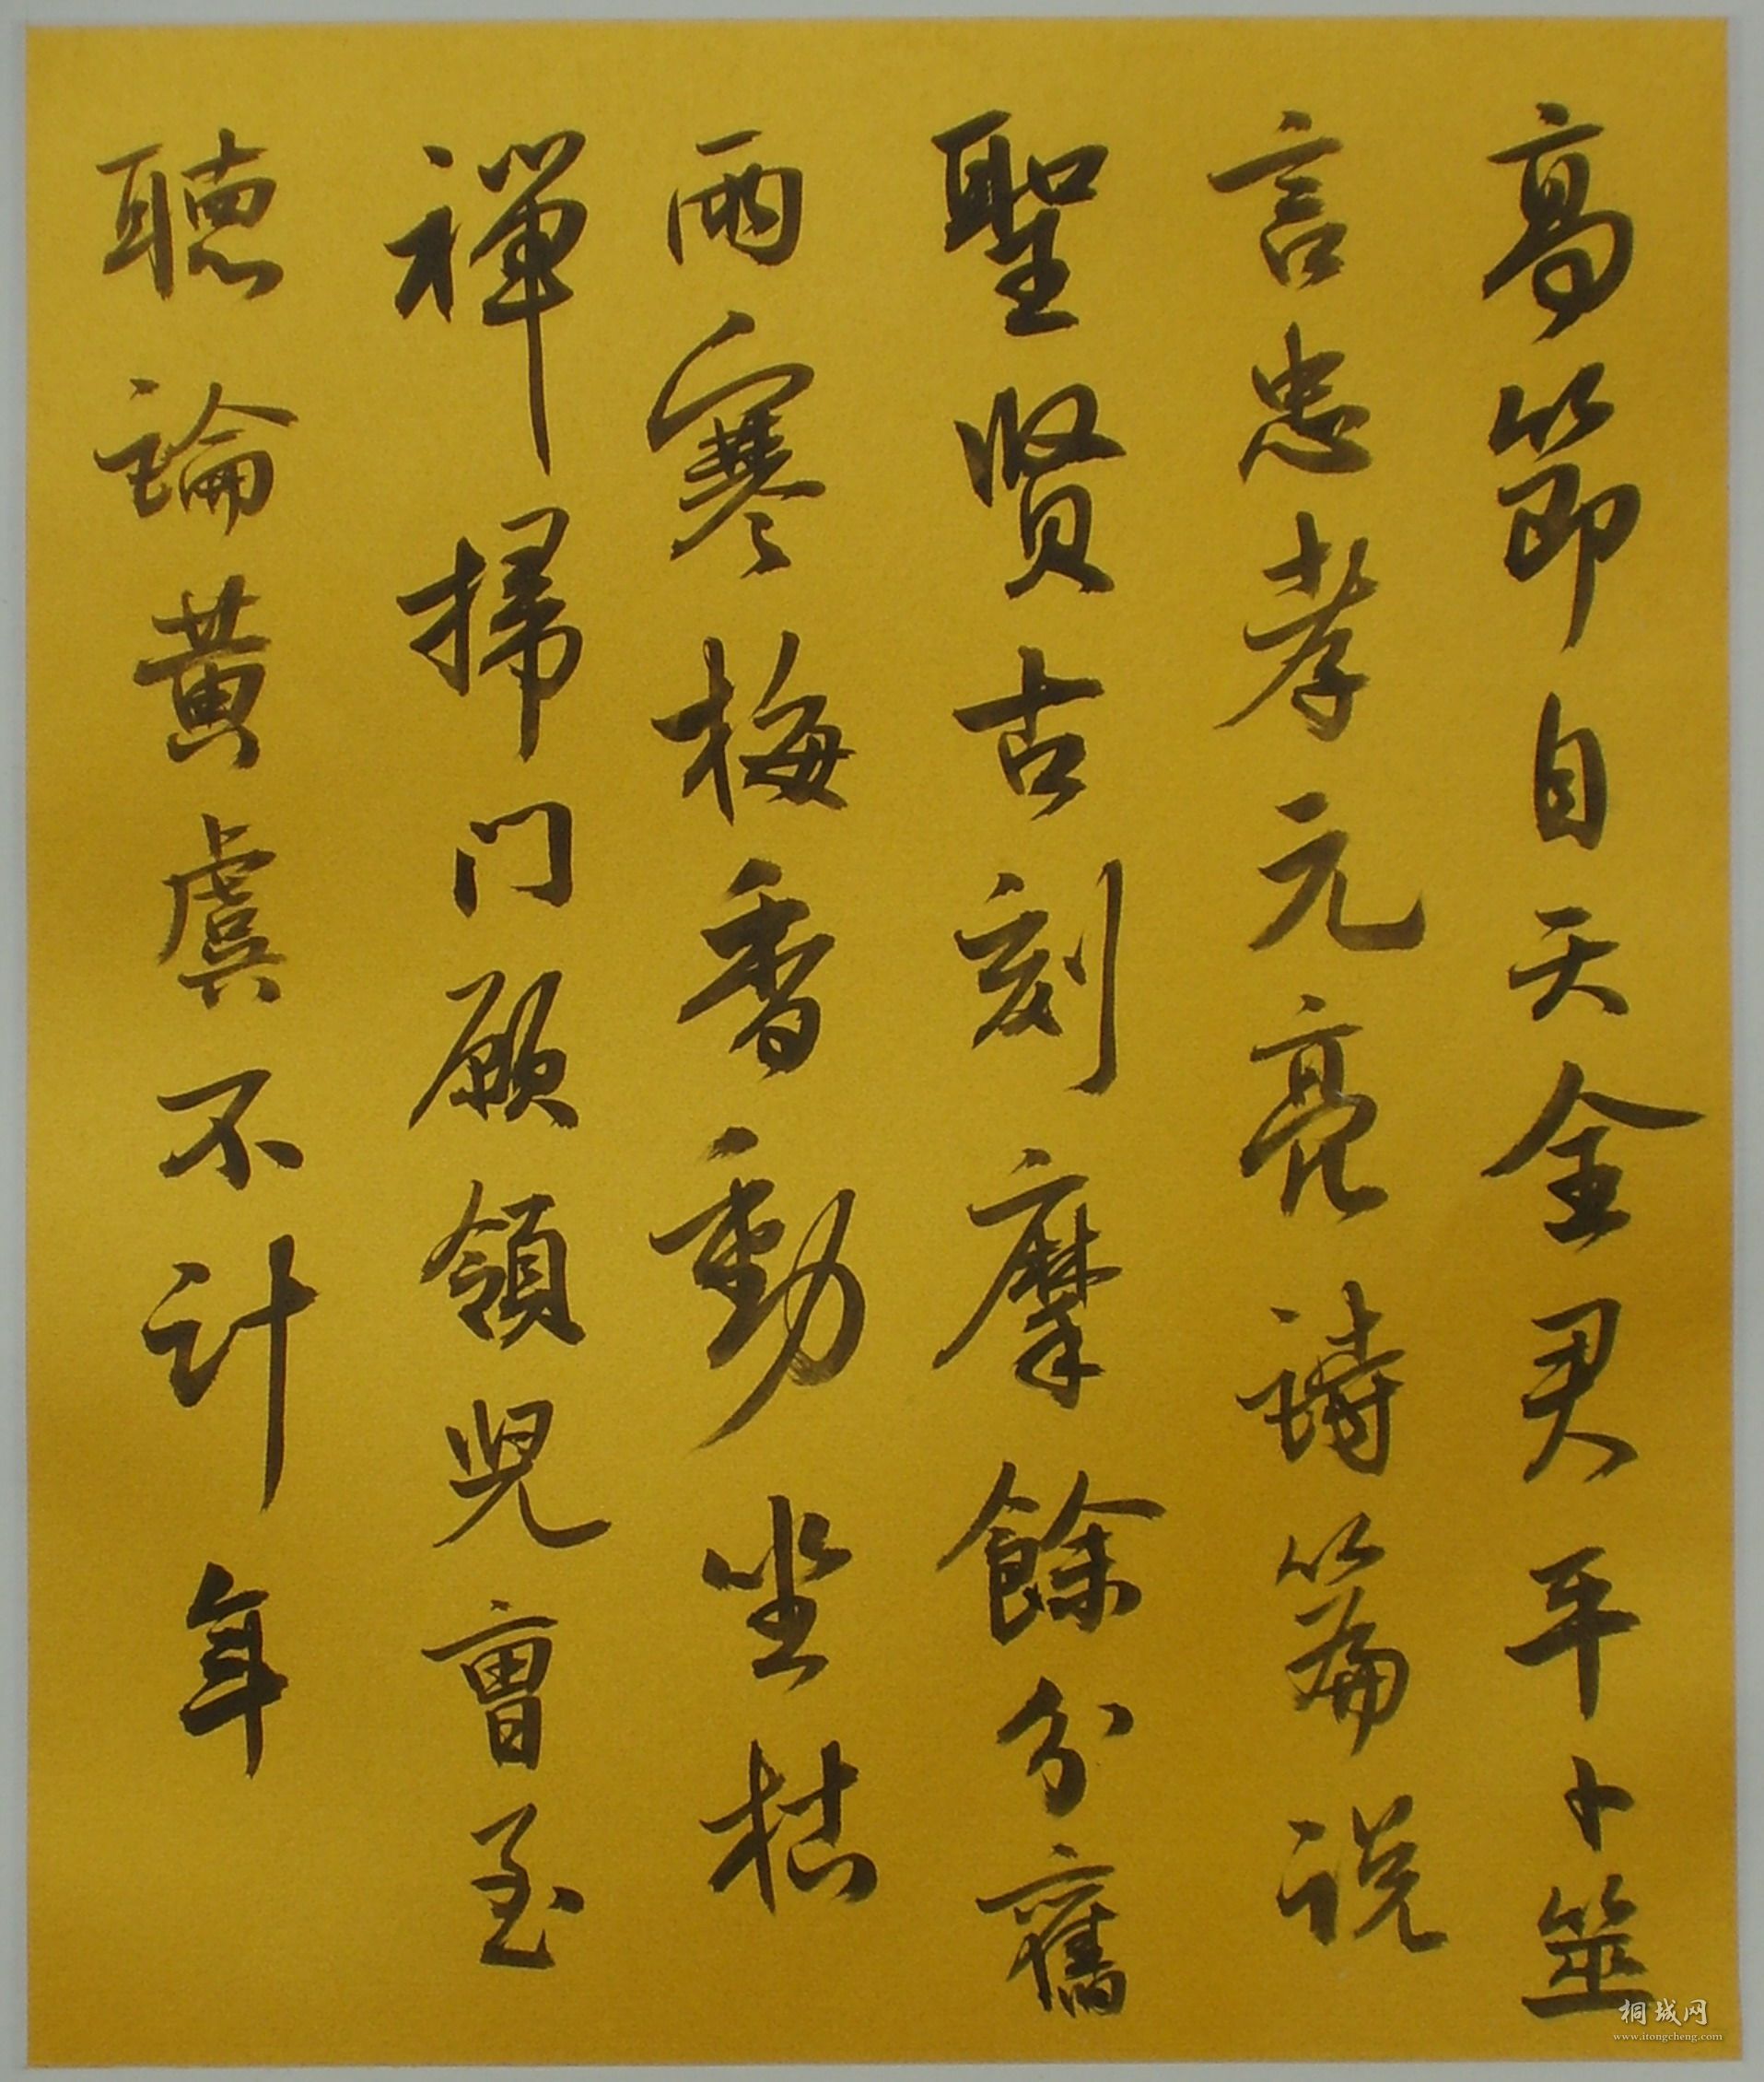 高節自天全君平卜筮
言忠孝元亮詩篇说
聖贤古刻摩餘分舊
雨寒梅香動坐枯
禪掃门願領児曹至
聽論黄虞不计年
桐城网
www.itongcheng.com